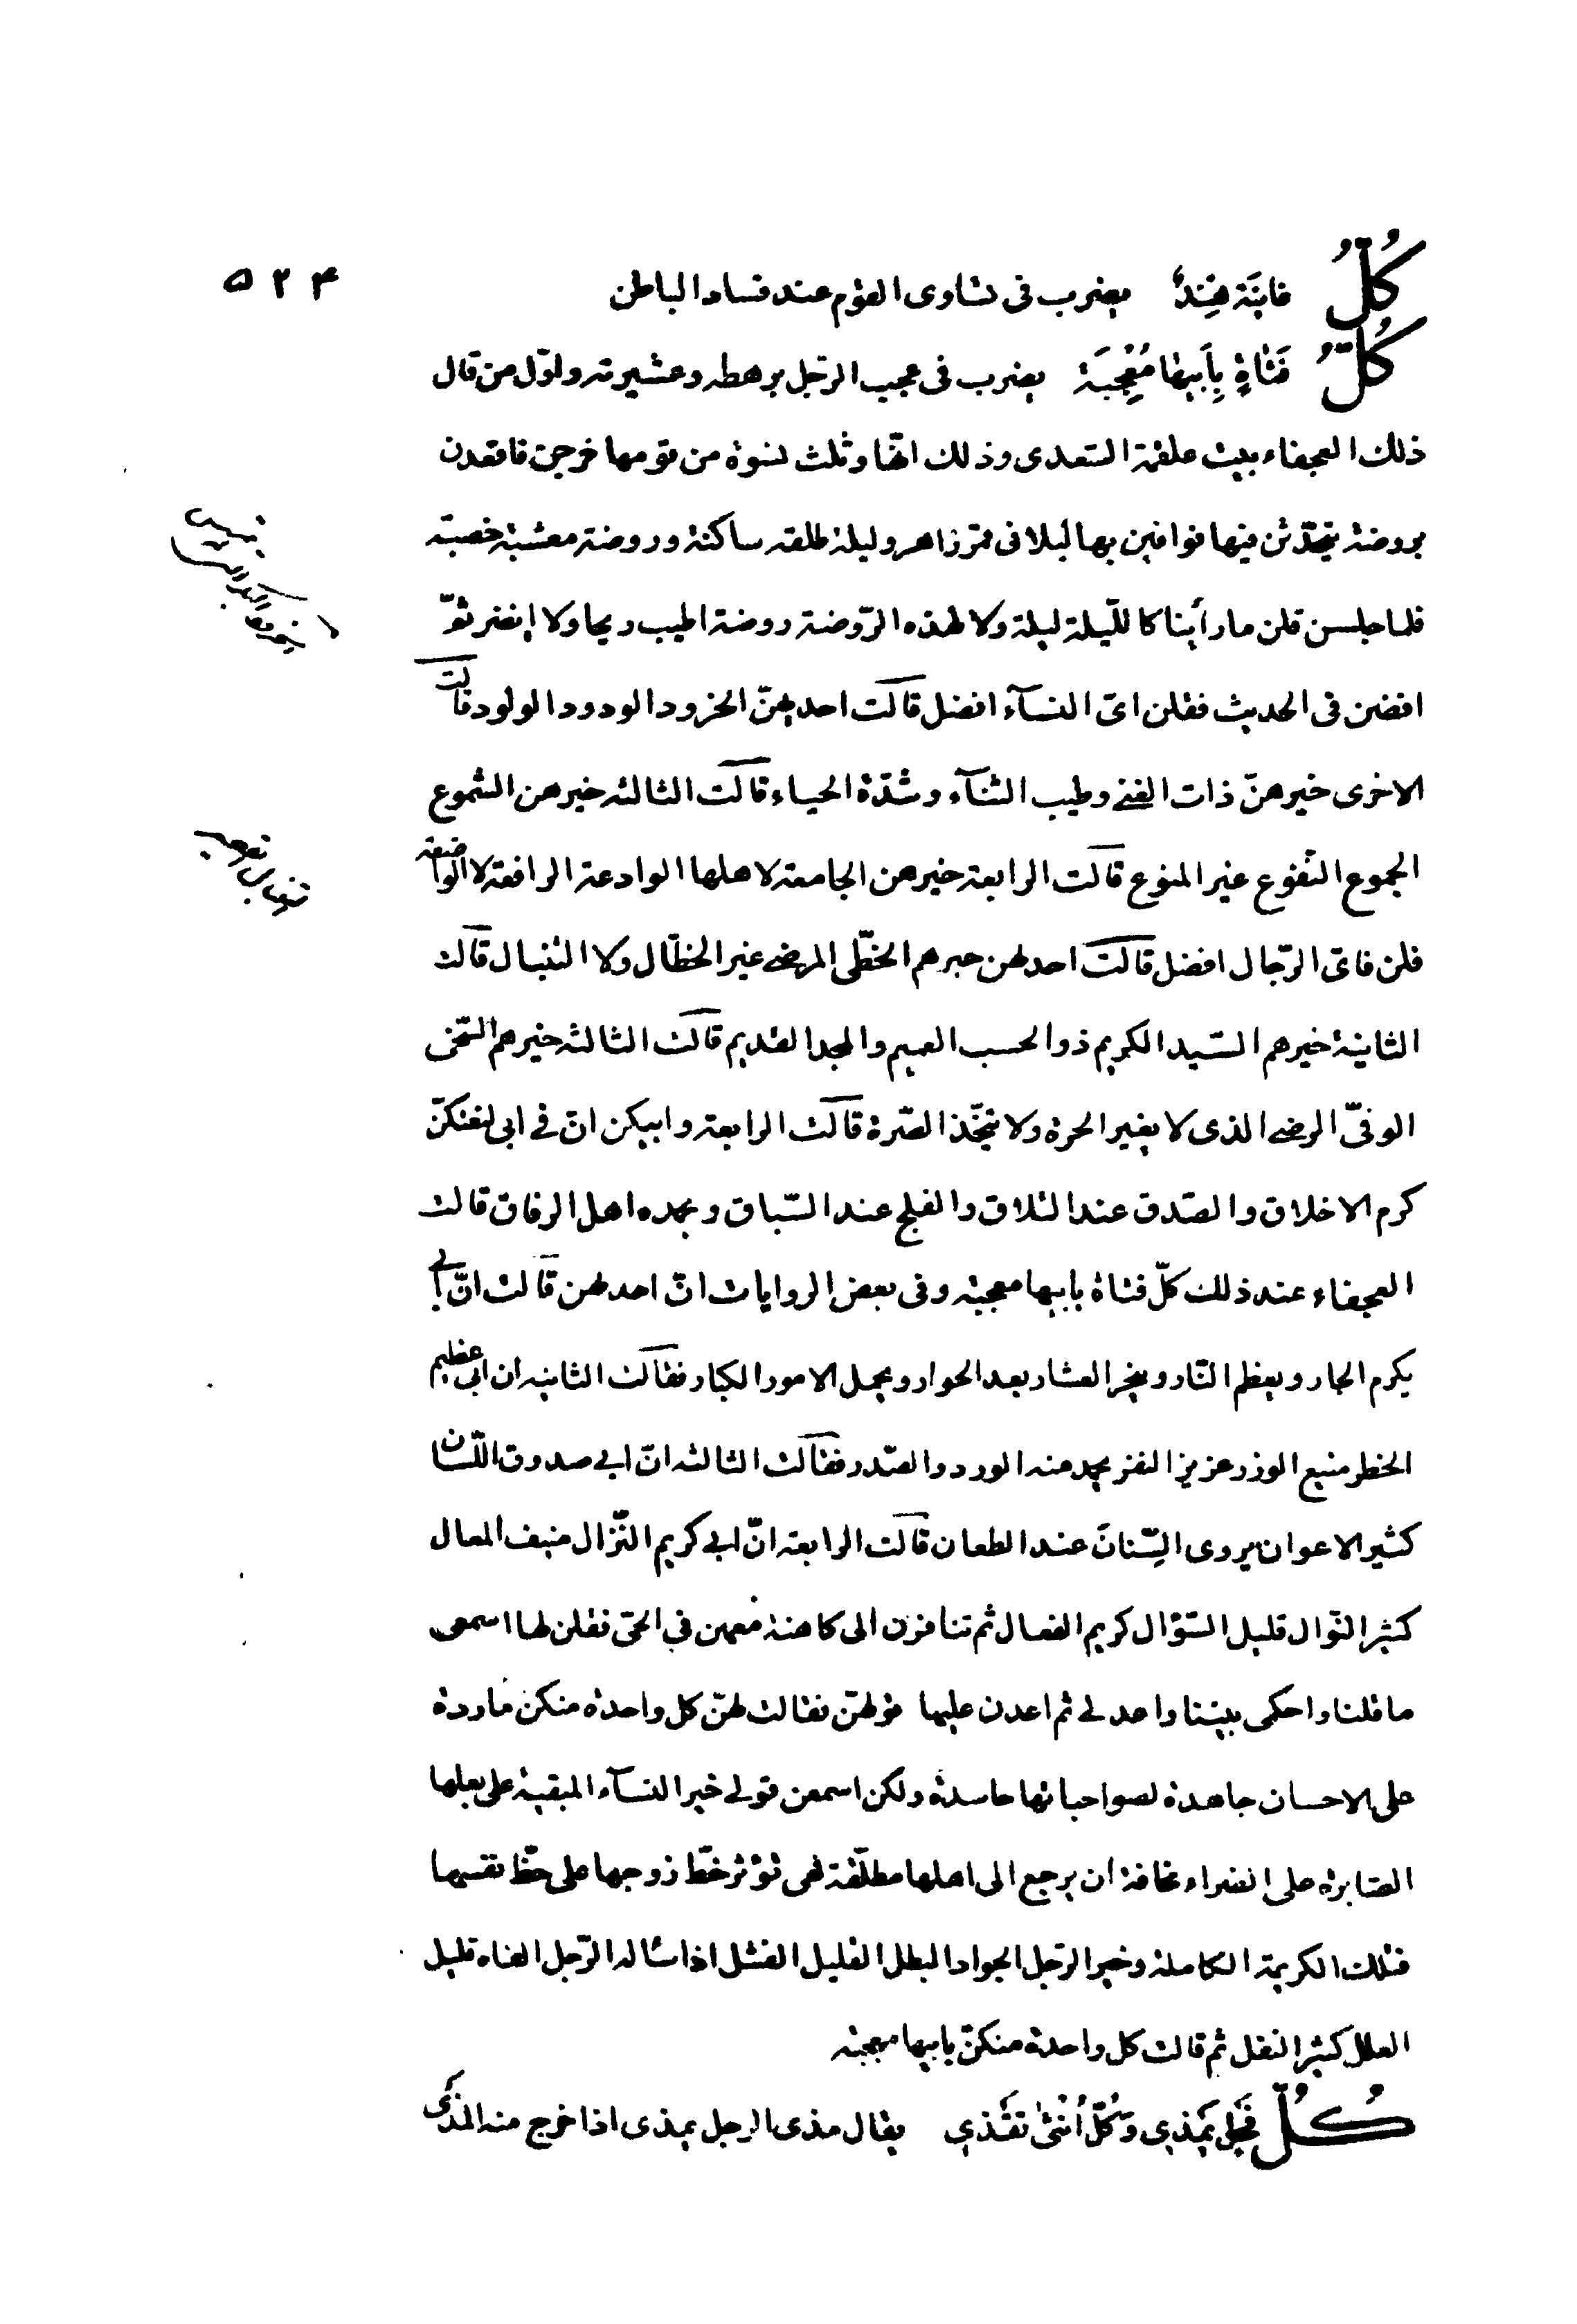 ۵۲۴
كُلُّ غانِيَة هِنْدٌ يضرب فى تساوى القوم عند فساد الباطن
كُلُّ فَتٰاةٍ بِاَبيهٰا مُعْجِبَة يضرب فى عجب الرّجل برهطه وعشيرته واوّل من قال
ذلك العجفاء بنت علقمة السّعدى وذلك انّها وثلث نسوة من قومها خرجن فاتعدن
بروضة يتحدّثن فيها فوافين بها ليلا فى قمر زاهر وليلة طلقه ساكنة وروضة معشبة خصبة
فلما جلسن قلن ما رأينا كاللّيلة ليلة ولا لهذه الرّوضة روضة اطيب ريحا ولا انضر ثمّ
افضن فى الحديث فقلن اىّ النسآء افضل قالت احديهنّ الخرود الودود الولود قالت
الاخرى خيرهنّ ذات الغنى وطيب الثنآء وشدّة الحياء قالت الثالثه خيرهن الشموع
الجموع النّفوع غير المنوع قالت الرابعة خيرهن الجامعة لاهلها الوادعة الرافعة لا الواضعة
قلن فاىّ الرّجال افضل قالت احدلهن خيرهم الحظّى المرضى غير الحظّال ولا التنبال قالت
الثانية خيرهم السّيد الكريم ذو الحسب العميم والمجد القديم قالت الثالثة خيرهم السّخى
الوفىّ الرضى الذى لا يغير الحرة ولا يتخّذ الضّرة قالت الرابعة وابيكن انّ في ابى لنعتكنّ
كرم الاخلاق والصّدق عند التلاق والفلج عند السّباق ويحمده اهل الرفاق قالت
العجفاء عند ذلك كلّ فتاة بابيها معجبة وفى بعض الروايات انّ احدلهن قالت انّ ابى
يكرم الجار ويعظم النّار وينحر العشار بعد الحوار ويحمل الامور الكبار فقالت الثانيه ان ابى عظيم
الخطر منيع الوزر عزيز النفر يحمد منه الورد والصّدر فقالت الثالثه انّ ابى صدوق اللّسان
كثير الاعوان يروى السِّنانَ عند الطعان قالت الرابعة انّ ابى كريم النّزال منيف المعال
كثير النّوال قليل السّؤال كريم الفعال ثم تنافرن الى كاهنة معهن في الحىّ فقلن لها اسمعى
ما قلنا واحكمى بيننا واعدلى ثم اعدن عليها قولهنّ فقالت لهنّ كل واحدة منكن ماردة
على الاحسان جاهدة لصواحباتها حاسدة ولكن اسمعن قولى خير النسآء المبقية على بعلها
الصّابرة على الضراء مخافة ان يرجع الى اهلها مطلّقة فهى تؤثر حظّ زوجها على حظّ نفسها
فتلك الكريمة الكاملة وخير الرّجل الجواد البطل القليل الفشل اذا سأله الرّجل الفاه قليل
العلل كثير النفل ثم قالت كل واحدة منكنّ بابيها معجبة
كُلُّ فَحْلٍ يَمْذي وَكُلُّ اُنْثىٰ تَقْذي يقال مذى الرجل يمذى اذا خرج منه المذى